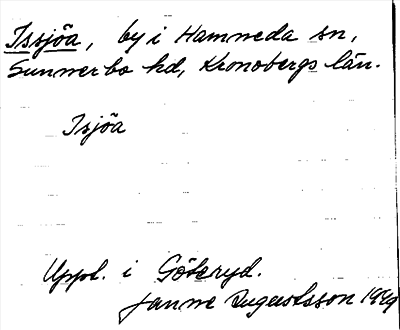 Issjöa, by i Hamneda sn,
Sunnerbo hd, Kronobergs län.
Isjöa
Uppt. i Göteryd.
Janne Ingwersson 1949